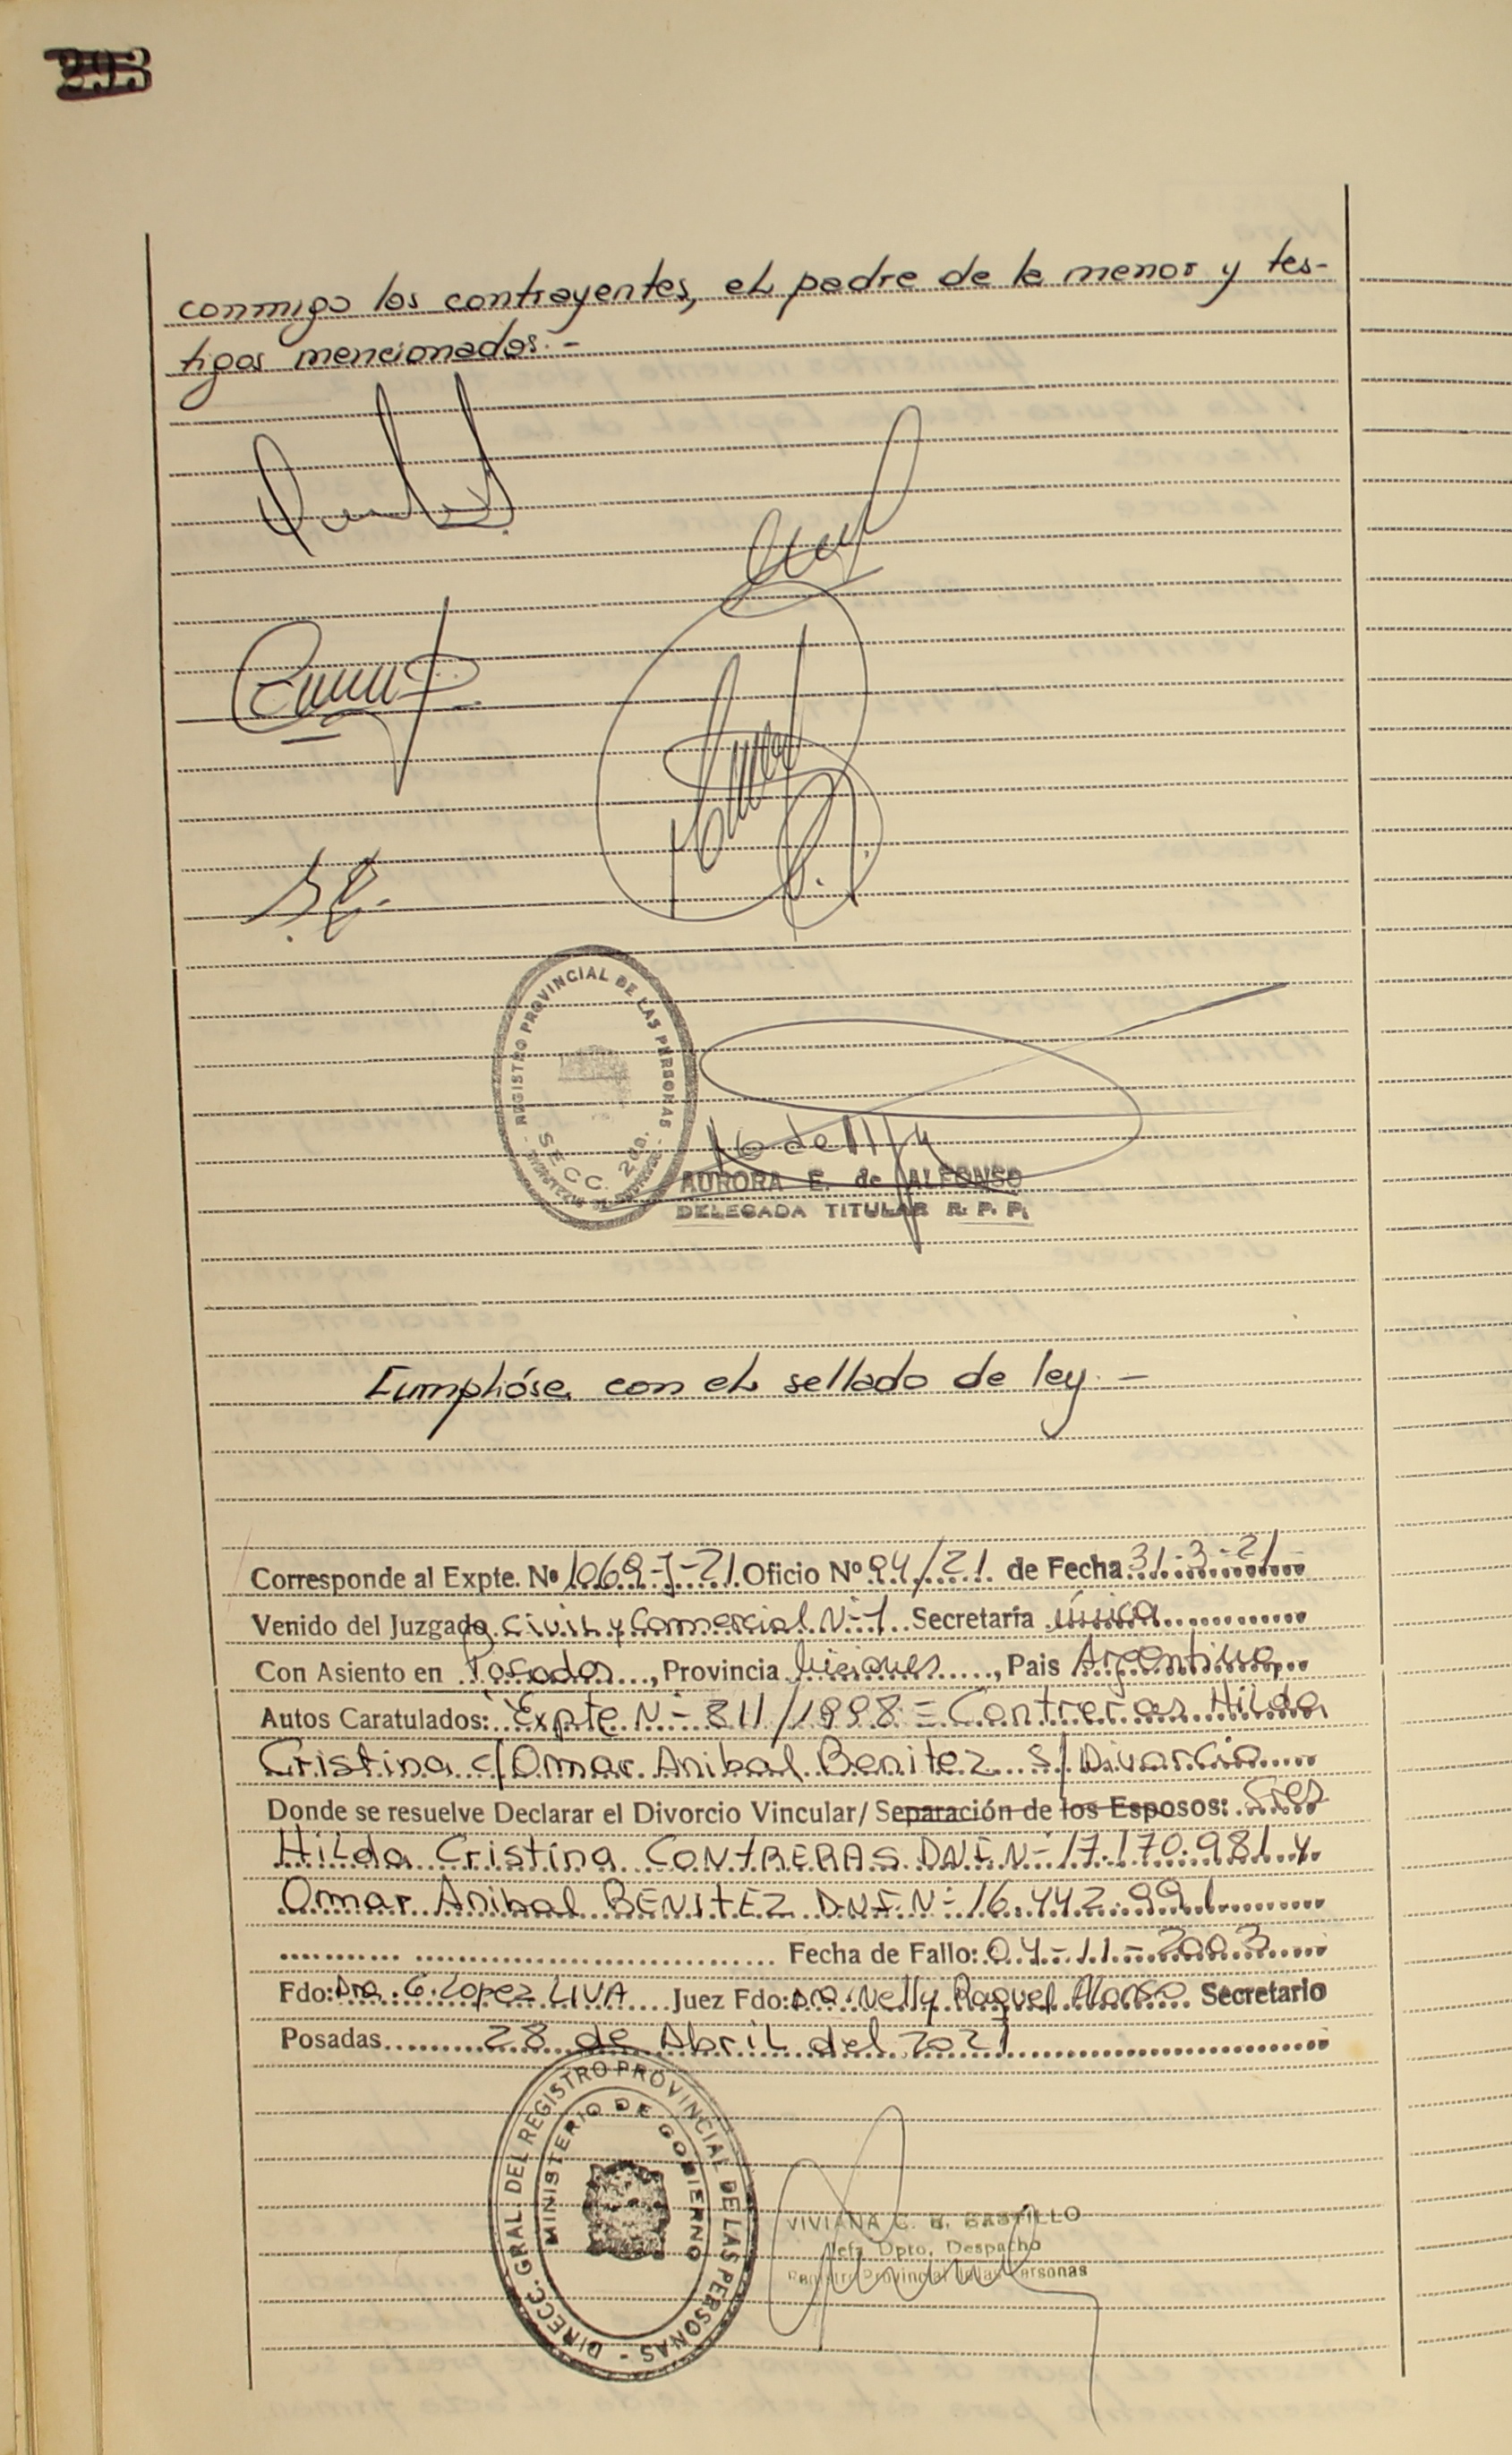 conmigo los contrayentes, el padre de la menor y tes-
tigos mencionados.-
REGISTRO PROVINCIAL DE LAS PERSONAS
SECC. 2da.
AURORA E. de ALFONSO
DELEGADA TITULAR R. P. P.
Cumplióse con el sellado de ley.-
Corresponde al Expte. Nº 1069-J-21 Oficio Nº 94/21 de Fecha 31-3-21
Venido del Juzgado Civil y Comercial Nº-1 Secretaría única
Con Asiento en Posadas, Provincia Misiones, Pais Argentina
Autos Caratulados: "Expte Nº- 811/1998 = Contreras Hilda
Cristina c/Omar Anibal Benitez s/Divorcio
Donde se resuelve Declarar el Divorcio Vincular/ Separación de los Esposos:
Hilda Cristina CONTRERAS DNI Nº-17.170.981 y
Omar Anibal BENITEZ DNI Nº-16.442.991
Fecha de Fallo: 04-11-2003
Fdo: Dra. G. Lopez LIVA Juez Fdo: Dra. Nelly Raquel Alonso Secretario
Posadas 28 de Abril del 2021
DIRECC. GRAL. DEL REGISTRO PROVINCIAL DE LAS PERSONAS -
MINISTERIO DE GOBIERNO
VIVIANA C. B. CASTILLO
Jefa Dpto. Despacho
Registro Provincial de las Personas